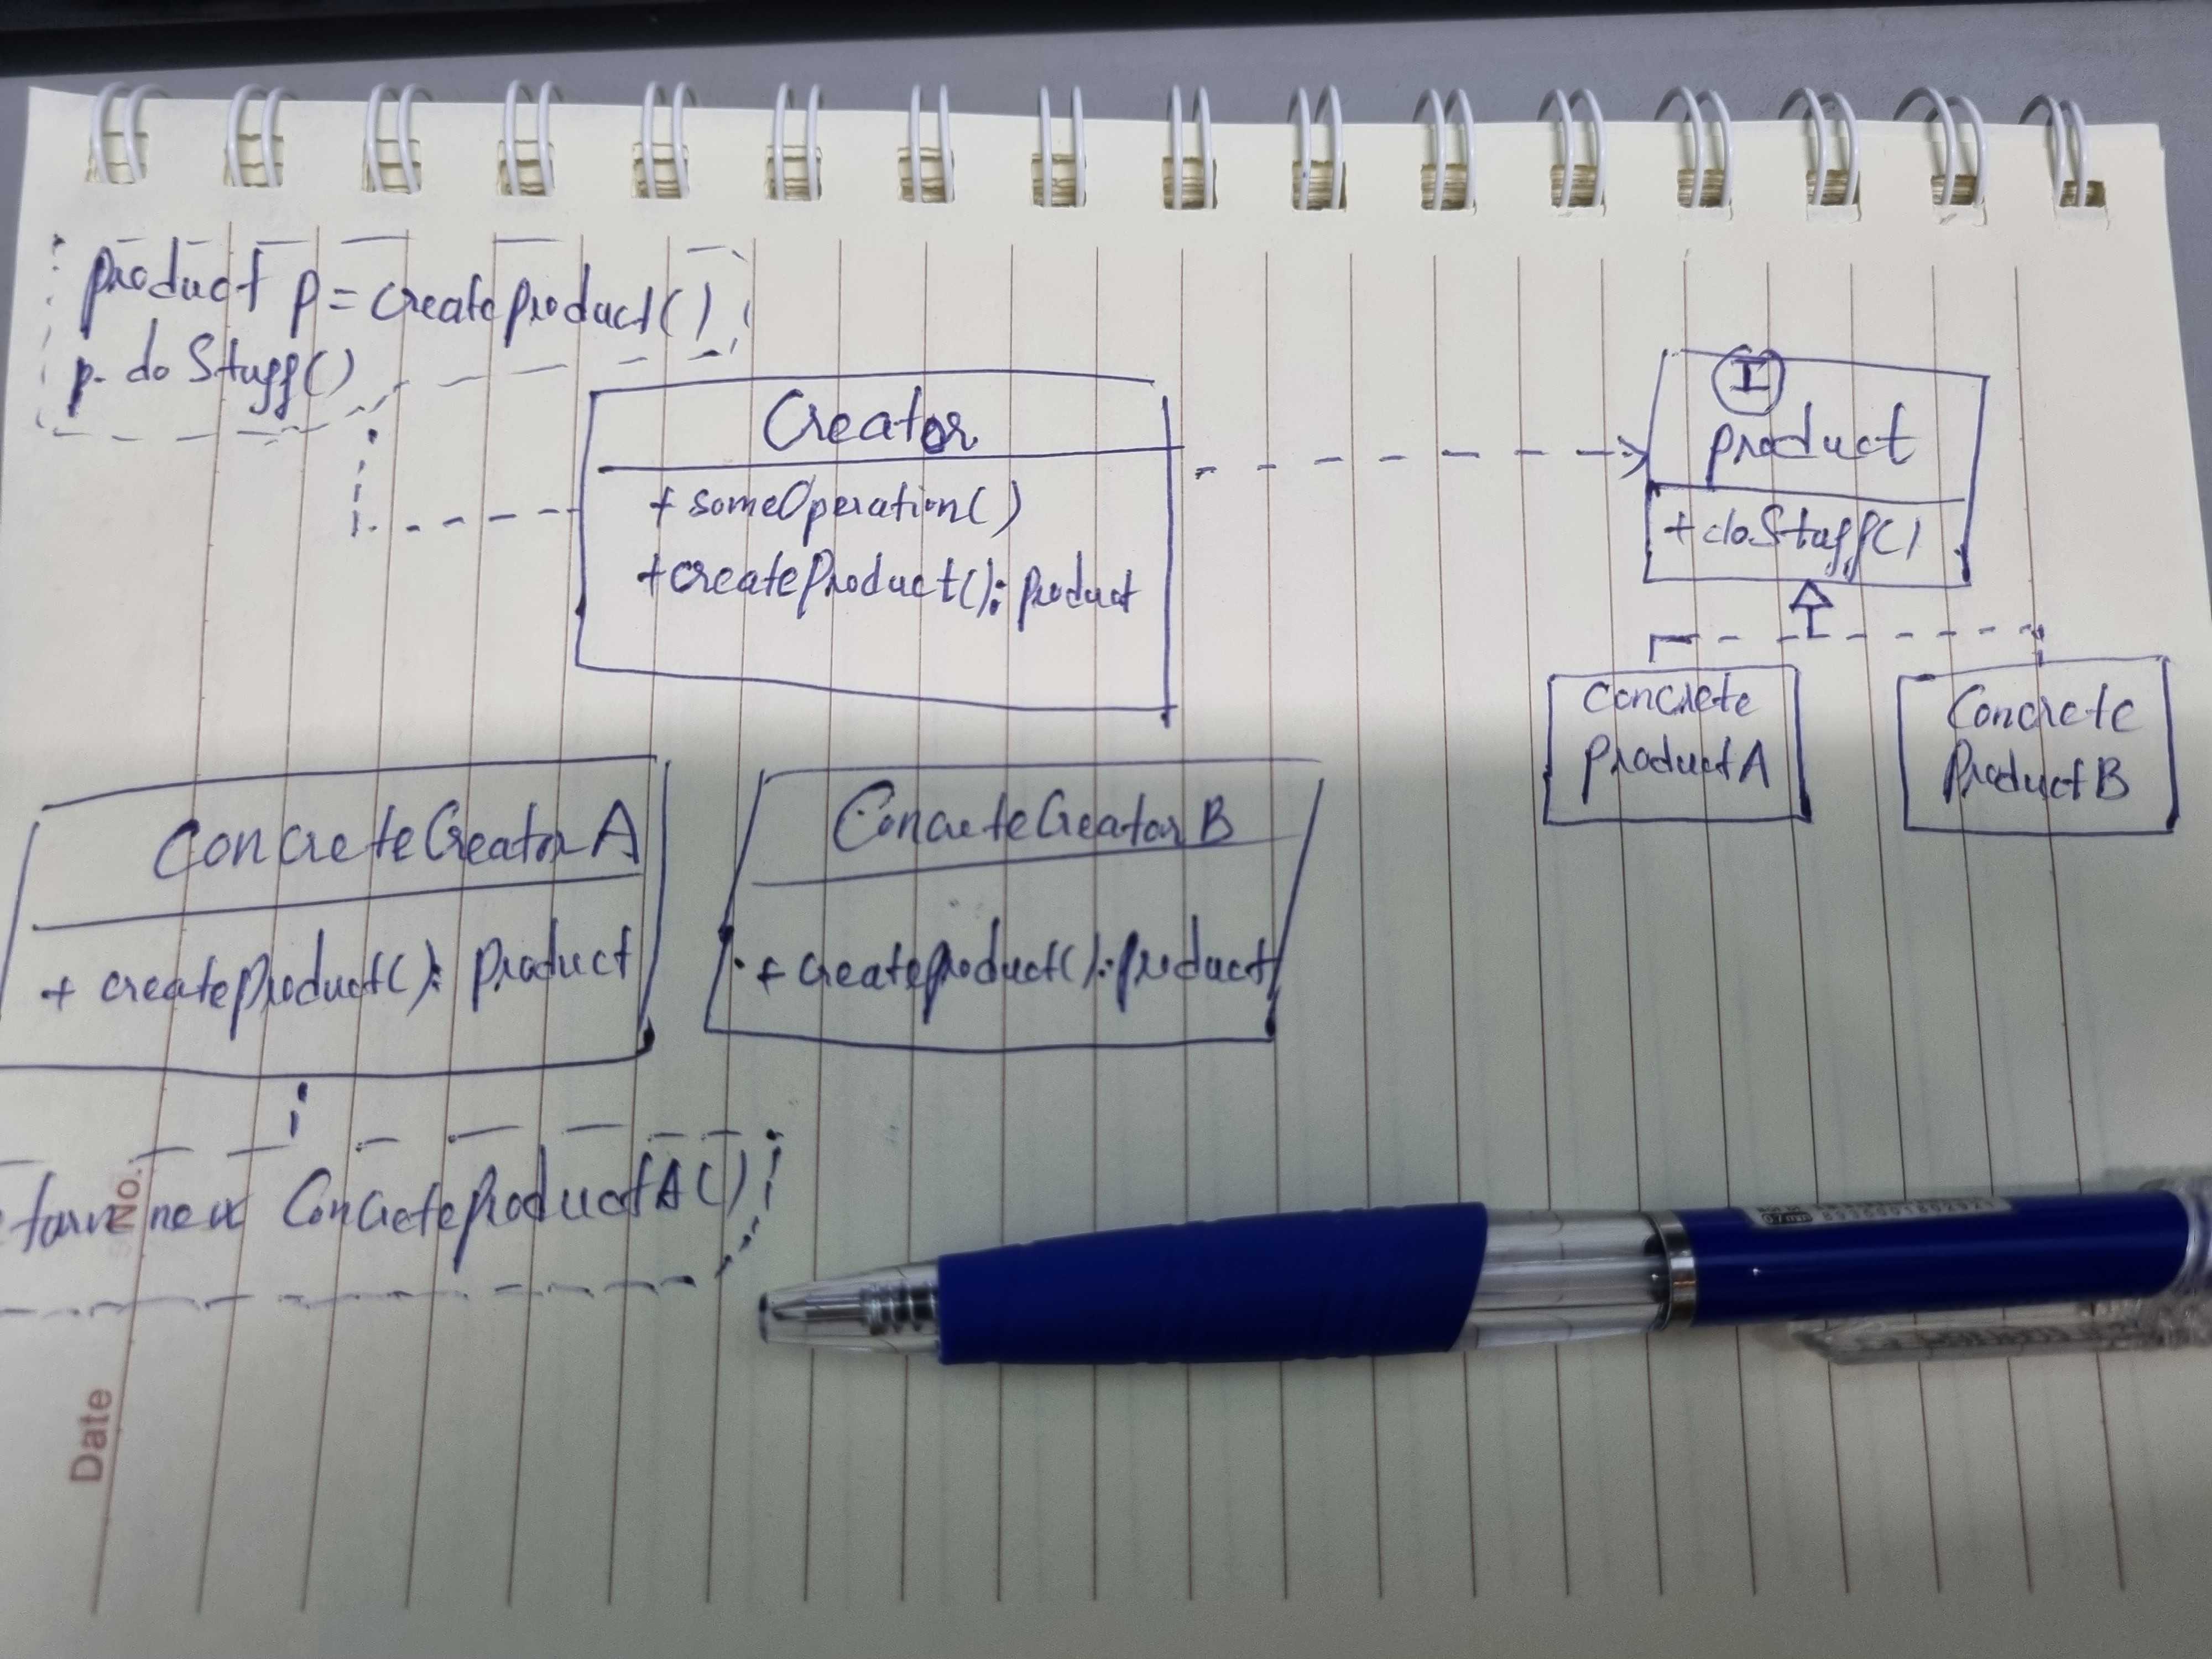 product p = createproduct()
p. doStuff()
Creator
+ someOperation()
+createProduct(): product
I
product
+doStuff()
Concrete
ProductA
Concrete
ProductB
ConcreteCreatorA
+ createProduct(): product
ConcreteCreatorB
+ createproduct(): product
new ConcreteproductA()
No.
Date